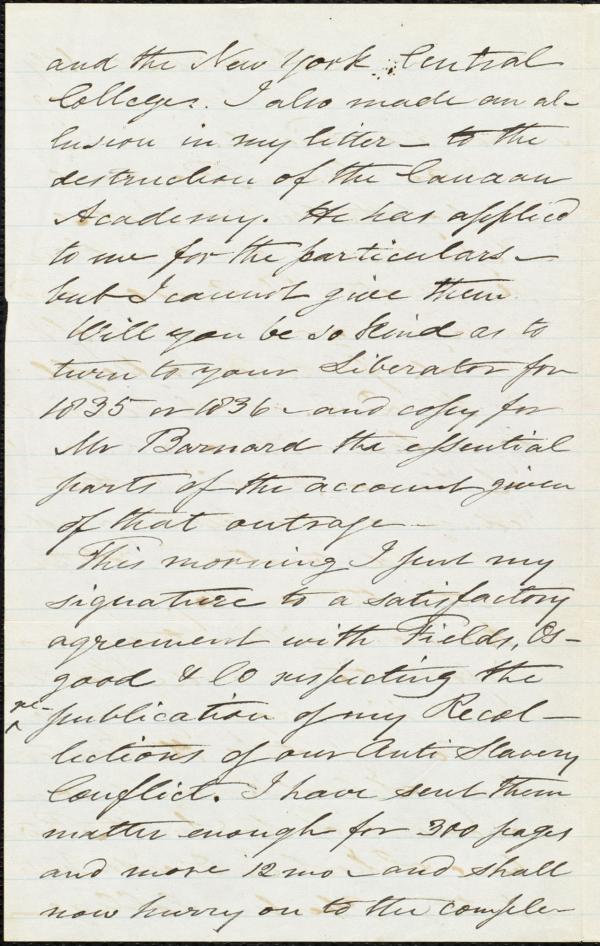 and the New York Central
College. I also made an al-
lusion in my letter – to the
destruction of the Canaan
Academy. He has applied
to me for the particulars –
but I cannot give them.
Will you be so kind as to
turn to your Liberator for
1835 or 1836 – and copy for
Mr Barnard the essential
parts of the account given
of that outrage –
This morning I put my
signature to a satisfactory
agreement with Fields, Os-
good & Co respecting the
re-
^ publication of my Recol-
lections of our Anti Slavery
Conflict. I have sent them
matter enough for 300 pages
and more 12mo – and shall
now hurry on to the comple-